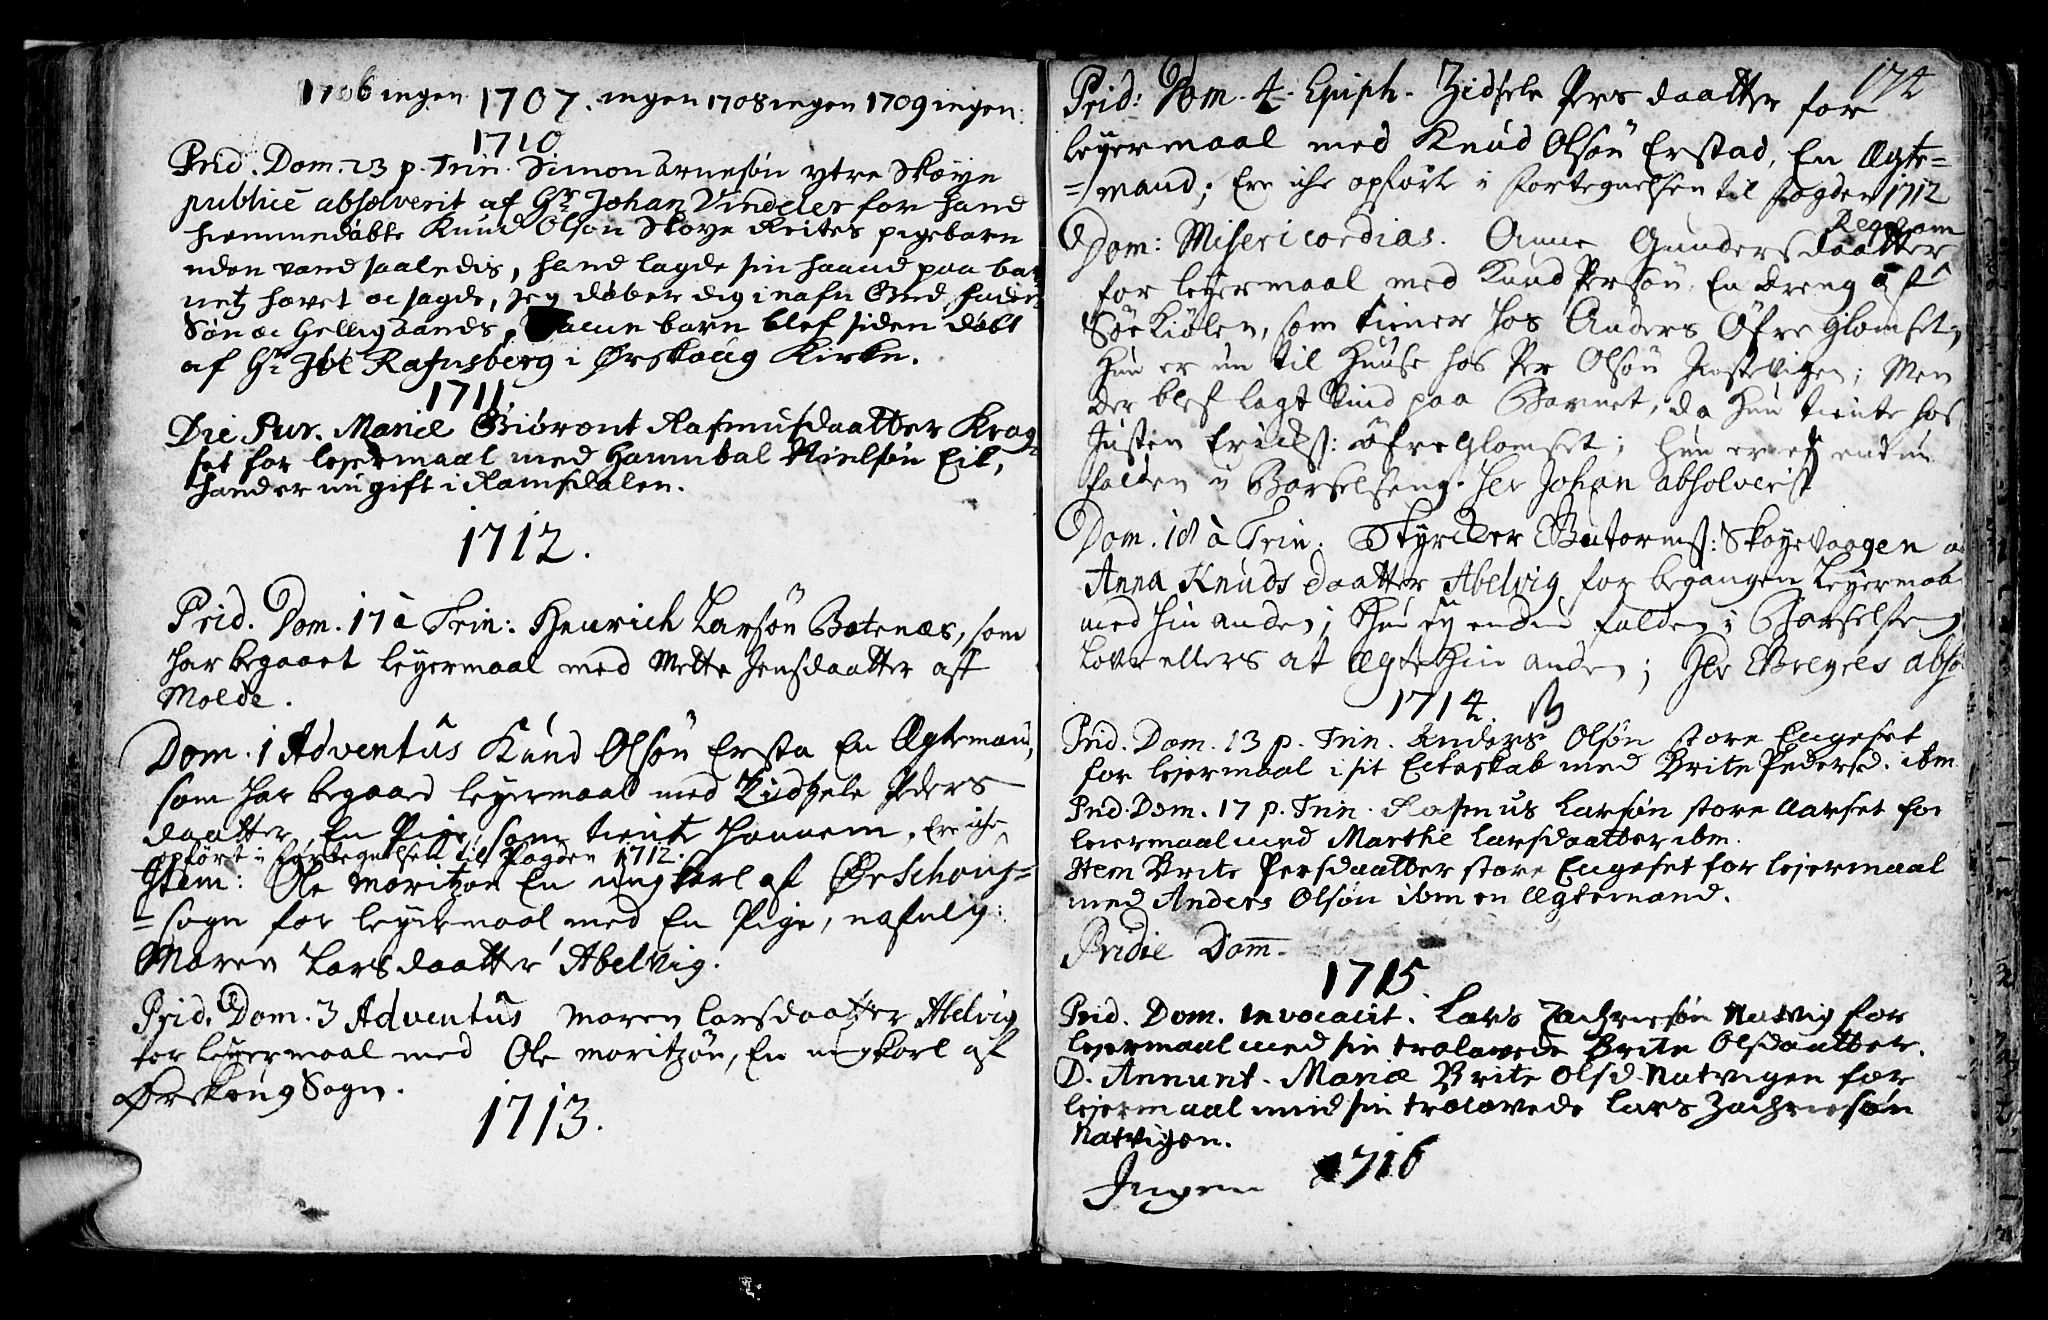 1706 ingen. 1707. ingen 1708 ingen 1709 ingen.
1710
Prid. Dom. 23 p. Trin. Simon Arnesøn ytre Skøye
publicè absolverit af Hr Johan Vindeler for hand
hiemmedøbte Knud Olsøn Skoye Reites pigebarn
uden vand saaledis, hand lagde sin haand paa bar
netz hovet oc sagde, Jeg døber dig i nafn Gud faders
Søn oc Hellig aands, barn blef siden døbt
af Hr Jvl Rafnsberg i Ørskoug Kirke.
1711.
Die Pur. Mariæ Giørant Rasmusdaatter Krog
set for lejermaal med Hannibal Nielsøn Eil,
hand er nu gift i Ramsdalen.
1712.
Prid. Dom. 17 à Trin: Henrich Larsøn Botenæs, som
har begaaet leyermaal med Mette Jensdaatter aff
Molde.
Dom. 1 Adventûs Knud Olsøn Ersta En Ægtemand,
som har begaaed leyermaal med Zidzele Peders
daatter En Pige, som tiente hannem. Ere iche
opført i fortegnelsen til Fogden 1712.
Item: Ole Moritzøn En ungkarl af Ørschoug=
=sogn for leyermaal med En Pige, nafnlig:
Maren Larsdaatter Abelvig.
Prid. Dom. 3 Adventûs Maren Larsdaatter Abelvig
for leyermaal med Ole Moritzøn, En ungkarl af
Ørskoug Sogn.
1713.
174
Prid: Dom. 4. Epiph. Zidsele Persdaatter for
leyermaal med Knud Olsøn Erstad, En Ægte=
=mand; Ere iche opført i fortegnelsen til fogden 1712
Dom: Misericordias. Anne Gundersdaatter
for leyermaal med Knud Persøn, En dreng af
Sørkiølen, som tiener hos Anders Øfre Glomset;
hun er nu til Huuse hos Per Olsøn Rostvigen; Men
der blef lagt Vind paa Barnet, da hun tiente hos
Justen Erichs: øfreGlomset; hun er ey endnu
falden i Barselseng. Her Johan absolverist
Dom. 18 à Trin. Styrcker Gutorms: Skoyevaagen oc
Anna Knudsdaatter Abelvig for begangen Leyermaal
med hin anden; Hun ey endnu falden i Barselseng
Lover ellers at Ægte hin anden; Her Gregres abso
1714.
Prid. Dom. 13 p. Trin. Anders Olsøn store Engeset
for lejermaal i sit Ecteskab med Brite Pedersd. ibm
Prid. Dom. 17 p. Trin. Rasmus Larsøn store Aarset for
leiermaal med Marthe Larsdaatter ibm.
Item Brite Persdaatter store Engeset for lejermaal
med Anders Olsøn ibm en Ægtemand.
Pridie Dom.
1715
Prid. Dom. invocavit. Lars Zachriesøn Natvig for
lejermaal med sin trolovede Brite Olsdaatter.
D. Annunt. Mariæ Brite Olsd. Natvigen for
lejermaal med sin trolovede Lars Zachriesøn
Natvigen.
Ingen 1716